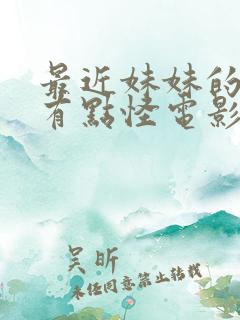 最近妹妹的
有點怪電影
吴昕
未经同意禁止转载